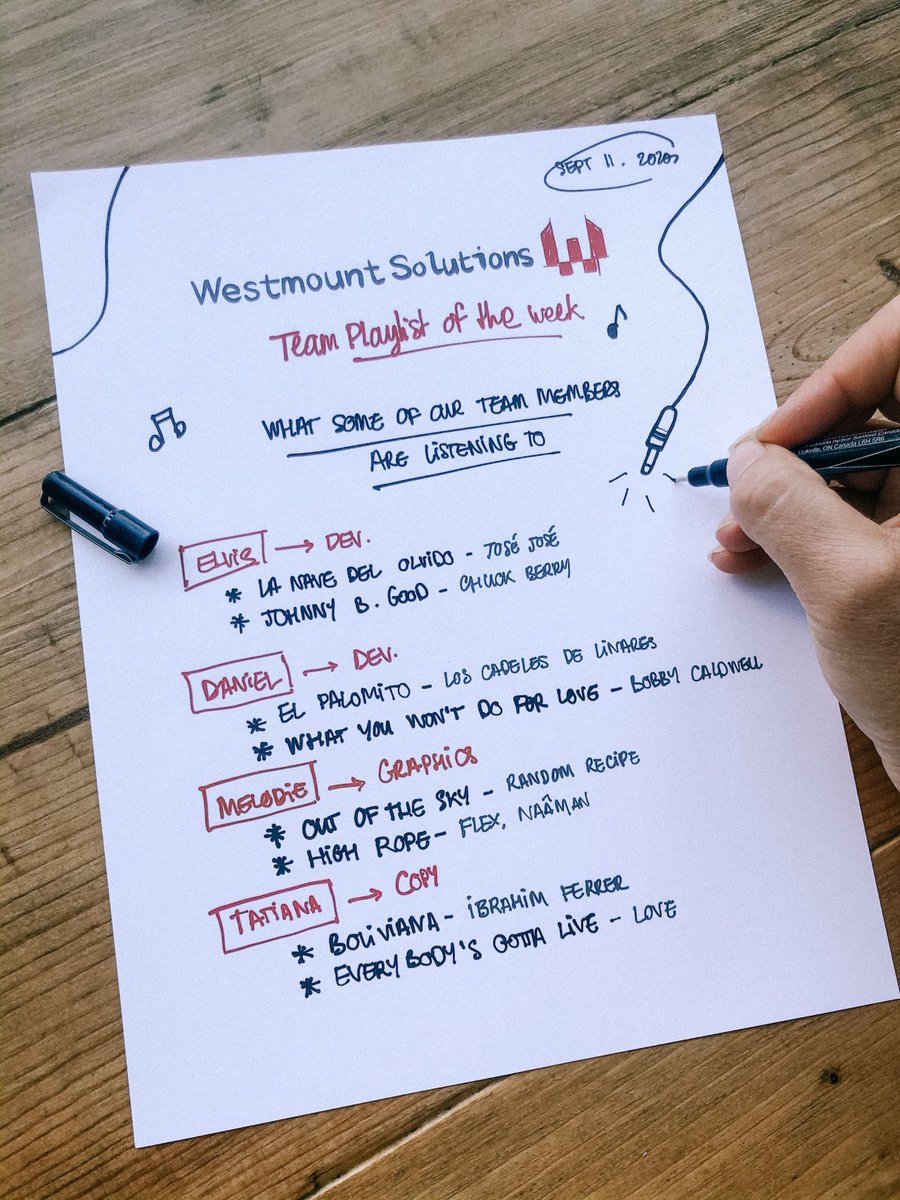 SEPT 11. 2020
Westmount Solutions
Team Playlist of the week
WHAT SOME OF OUR TEAM MEMBERS
ARE LISTENING TO
ELVIS → DEV.
* LA NAVE DEL OLVIDO - JOSÉ JOSÉ
* JOHNNY B. GOOD - CHUCK BERRY
DANIEL → DEV.
* EL PALOMITO - LOS CADELES DE LINARES
* WHAT YOU WON'T DO FOR LOVE - BOBBY CALDWELL
MELODIE → GRAPHICS
* OUT OF THE SKY - RANDOM RECIPE
* HIGH ROPE - FLEX, NAÂMAN
TATIANA → COPY
* BOLIVIANA - IBRAHIM FERRER
* EVERYBODY'S GOTTA LIVE - LOVE
Oakville, ON Canada L6H 5R6